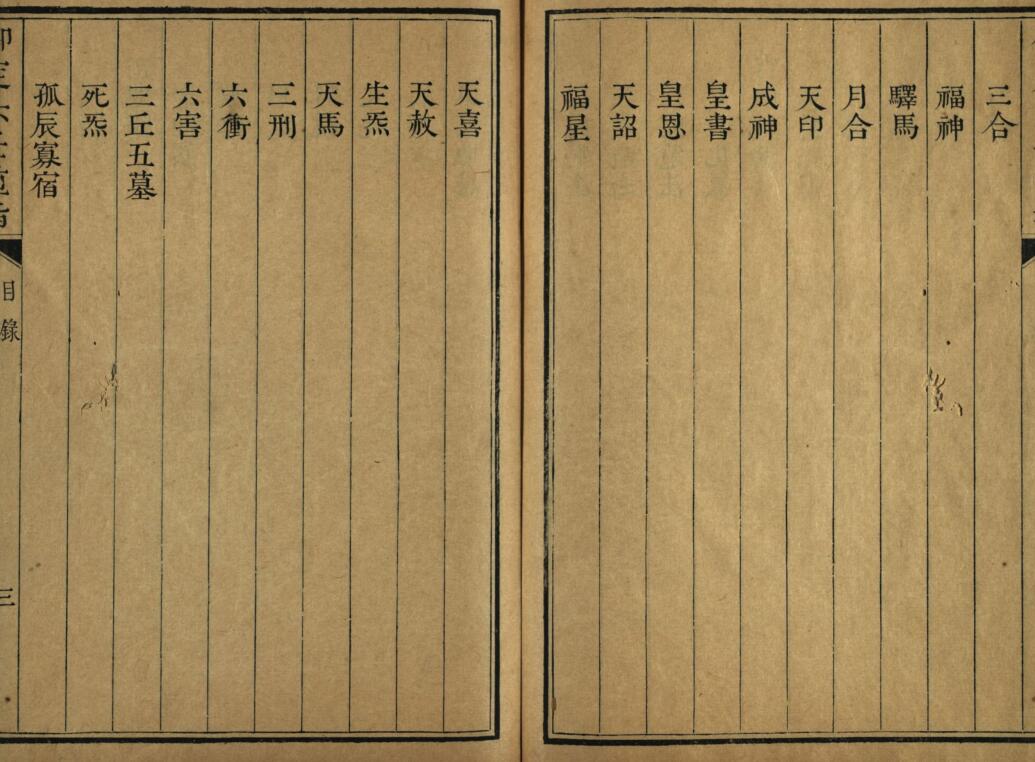 三合
福神
驛馬
月合
天印
成神
皇書
皇恩
天詔
福星
天喜
天赦
生炁
天馬
三刑
六衝
六害
三丘五墓
死炁
孤辰寡宿
目錄
三